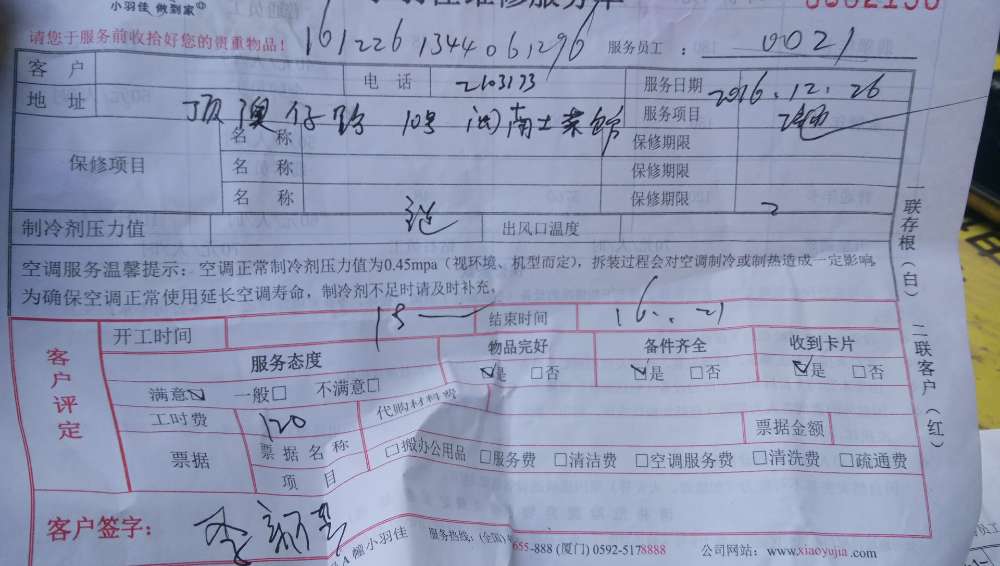 小羽佳 做到家
请您于服务前收拾好您的贵重物品! 1612261344061296 服务员工: 0021
客户 电话 2103173 服务日期 2016.12.26
地址 顶澳仔路 10号 闽南土菜馆 服务项目
保修项目 名称 保修期限
名称 保修期限
名称 保修期限
制冷剂压力值 出风口温度
空调服务温馨提示:空调正常制冷剂压力值为0.45mpa(视环境、机型而定),拆装过程会对空调制冷或制热造成一定影响,
为确保空调正常使用延长空调寿命,制冷剂不足时请及时补充。
开工时间 结束时间
客户评定 服务态度 物品完好 备件齐全 收到卡片
满意☑ 一般□ 不满意□ ☑是 □否 ☑是 □否 ☑是 □否
工时费 120 代购材料费
票据 票据名称 □搬办公用品 □服务费 □清洁费 □空调服务费 □清洗费 □疏通费
票据金额
项目
客户签字:
小羽佳 服务热线:(全国) 655-888 (厦门) 0592-5178888 公司网站:www.xiaoyujia.com
一联存根(白) 二联客户(红)